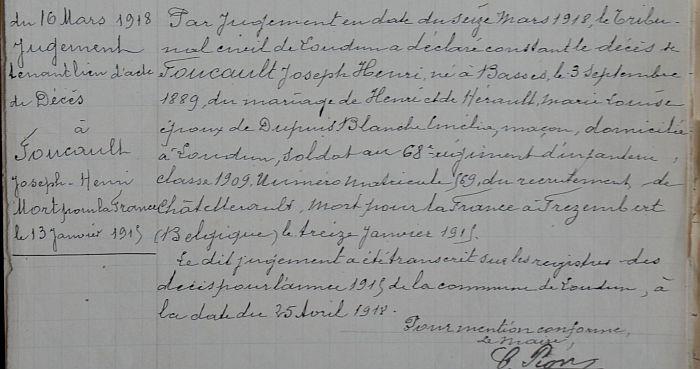 du 16 Mars 1918
Jugement
tenant lieu d'acte
de Décès
à
Foucault
Joseph-Henri
Mort pour la France
le 13 Janvier 1915
Par Jugement en date du seize Mars 1918, le Tribu-
nal civil de Loudun a déclaré constant le décès de
Foucault Joseph Henri, né à Basses, le 3 Septembre
1889, du mariage de Henri et de Hérault, Marie Louise
époux de Dupuis Blanche Emélie, maçon, domicilié
à Loudun, soldat au 68e régiment d'infanterie,
classe 1909, Numéro matricule 569, du recrutement de
Châtellerault, Mort pour la France à Frezemberg
(Belgique) le treize Janvier 1915.
Le dit jugement a été transcrit sur les registres des
décès pour l'année 1915 de la commune de Loudun, à
la date du 25 Avril 1918.
Pour mention conforme,
Le Maire,